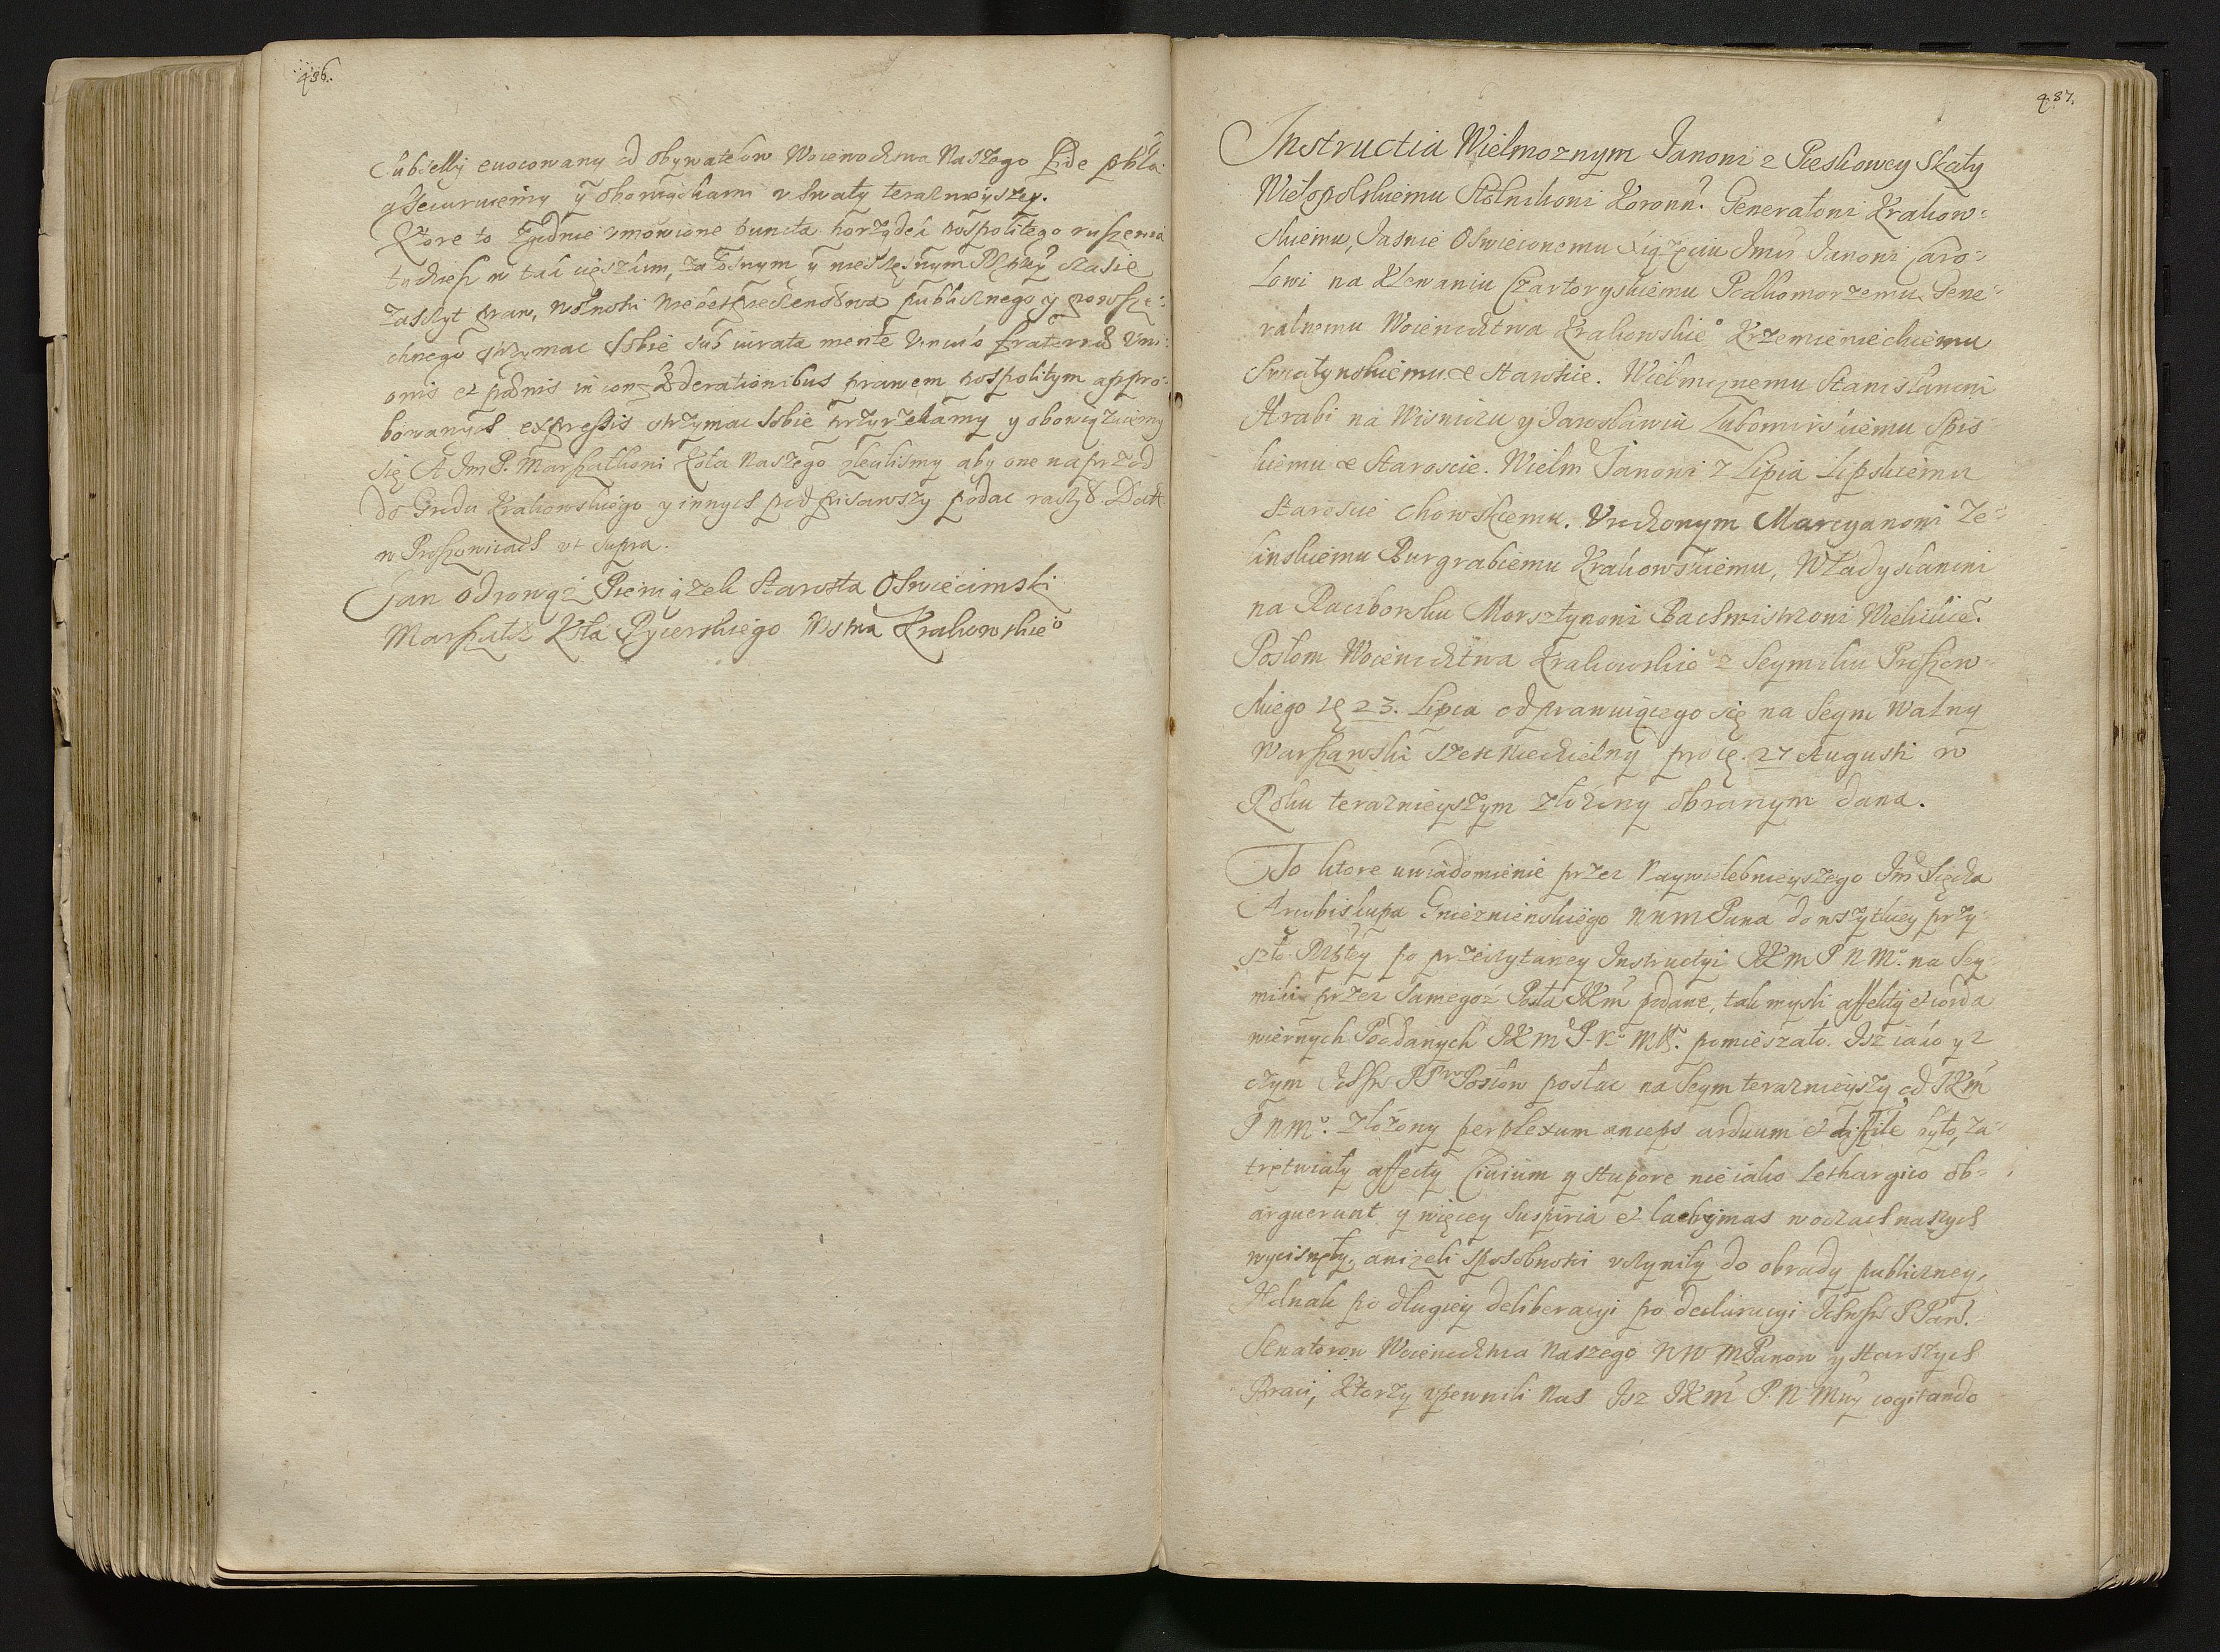 486.
subjelly euocowany od obywatelow Woiewodztwa Naszego fide pbla
assecuruiemy y obowiązkami uchwały teraznieyszey.
Ktore to zgodnie vmowione puncta porządek pospolitego ruszenia
tudziesz w tak cięszkim, załosnym y nieszczęsnym Rptey czasie
zaszczyt praw, wolnosci niebespieczenstwa publicznego y powsze:
chnego otrzymac sobie sub iurata mente vinculo fraterno Uni:
onis et poenis in confaederationibus prawem pospolitym appro:
bowanych expressis otrzymac sobie przyrzekamy y obowiązuiemy
się A Jm P. Marszałkowi Koła Naszego zlecilismy aby one naprzod
do Grodu Krakowskiego y innych podpisawszy podac raczył. Datt
w Proszowicach vt supra.
Jan Odrowąz Pieniązek Starosta Oswiecimski
Marszałek Koła Rycerskiego Wstwa Krakowskieo
487.
Instructia Wielmoznym Janowi z Pieskowey Skały
Wielopolskiemu Stolnikowi Koronn. Generałowi Krakow:
skiemu, Jasnie Oswieconemu Xiązęciu Jmci Janowi Caro:
lowi na Klewaniu Czartoryskiemu Podkomorzemu Gene:
ralnemu Woiewodztwa Krakowskieo Krzemienieckiemu
Smiatynskiemu &c Staroscie. Wielmoznemu Stanisławowi
Hrabi na Wisniczu y Jarosławiu Lubomirskiemu Spis
kiemu &c Staroscie. Wielm Janowi z Lipia Lipskiemu
Staroscie Chowskiemu. Vrodzonym Marcyanowi Ze:
linskiemu Burgrabiemu Krakowskiemu, Władysławowi
na Raciborsku Morsztynowi Bachmistrzowi Wielickie.
Posłom Woiewodztwa Krakowskieo z Seymiku Proszow:
skiego 23. Lipca odprawuiącego się na Seym Walny
Warszawski szescniedzielny pro 27 Augusti w
Roku teraznieyszym złozony obranym dana.
To ktore uwiadomienie przez Naywielebnieyszego Jm Xiędza
Arcybiskupa Gnieznienskiego NNM Pana do wszytkiey przy:
szło Rptey po przeczytaney Instructyi JKM P N Mo. na Sey
miku przez samegoz Posła JKM podane, tak mysli affekty et corda
wiernych Poddanych JKM P. No M. pomieszało. Isz iako y z
czym Ichm PPnw Posłow posłac na Seym teraznieyszy od JKM
P N Mo. złozony perplexum anceps arduum et difficile było, za:
trętwiały affecty Ciuium y stupore nieiako lethargico ob:
arguerunt y więcey suspiria et lachrymas w oczach naszych
wycisnęły, anizeli sposobnosci vczyniły do obrady publiczney,
Jednak po długiey deliberacyi po declaracyi Ichm P Pan.
Senatorow Woiewodztwa Naszego NW M Panow y starszych
Braci, ktorzy vpewnili Nas Isz JKM P. N Mwy cogitando